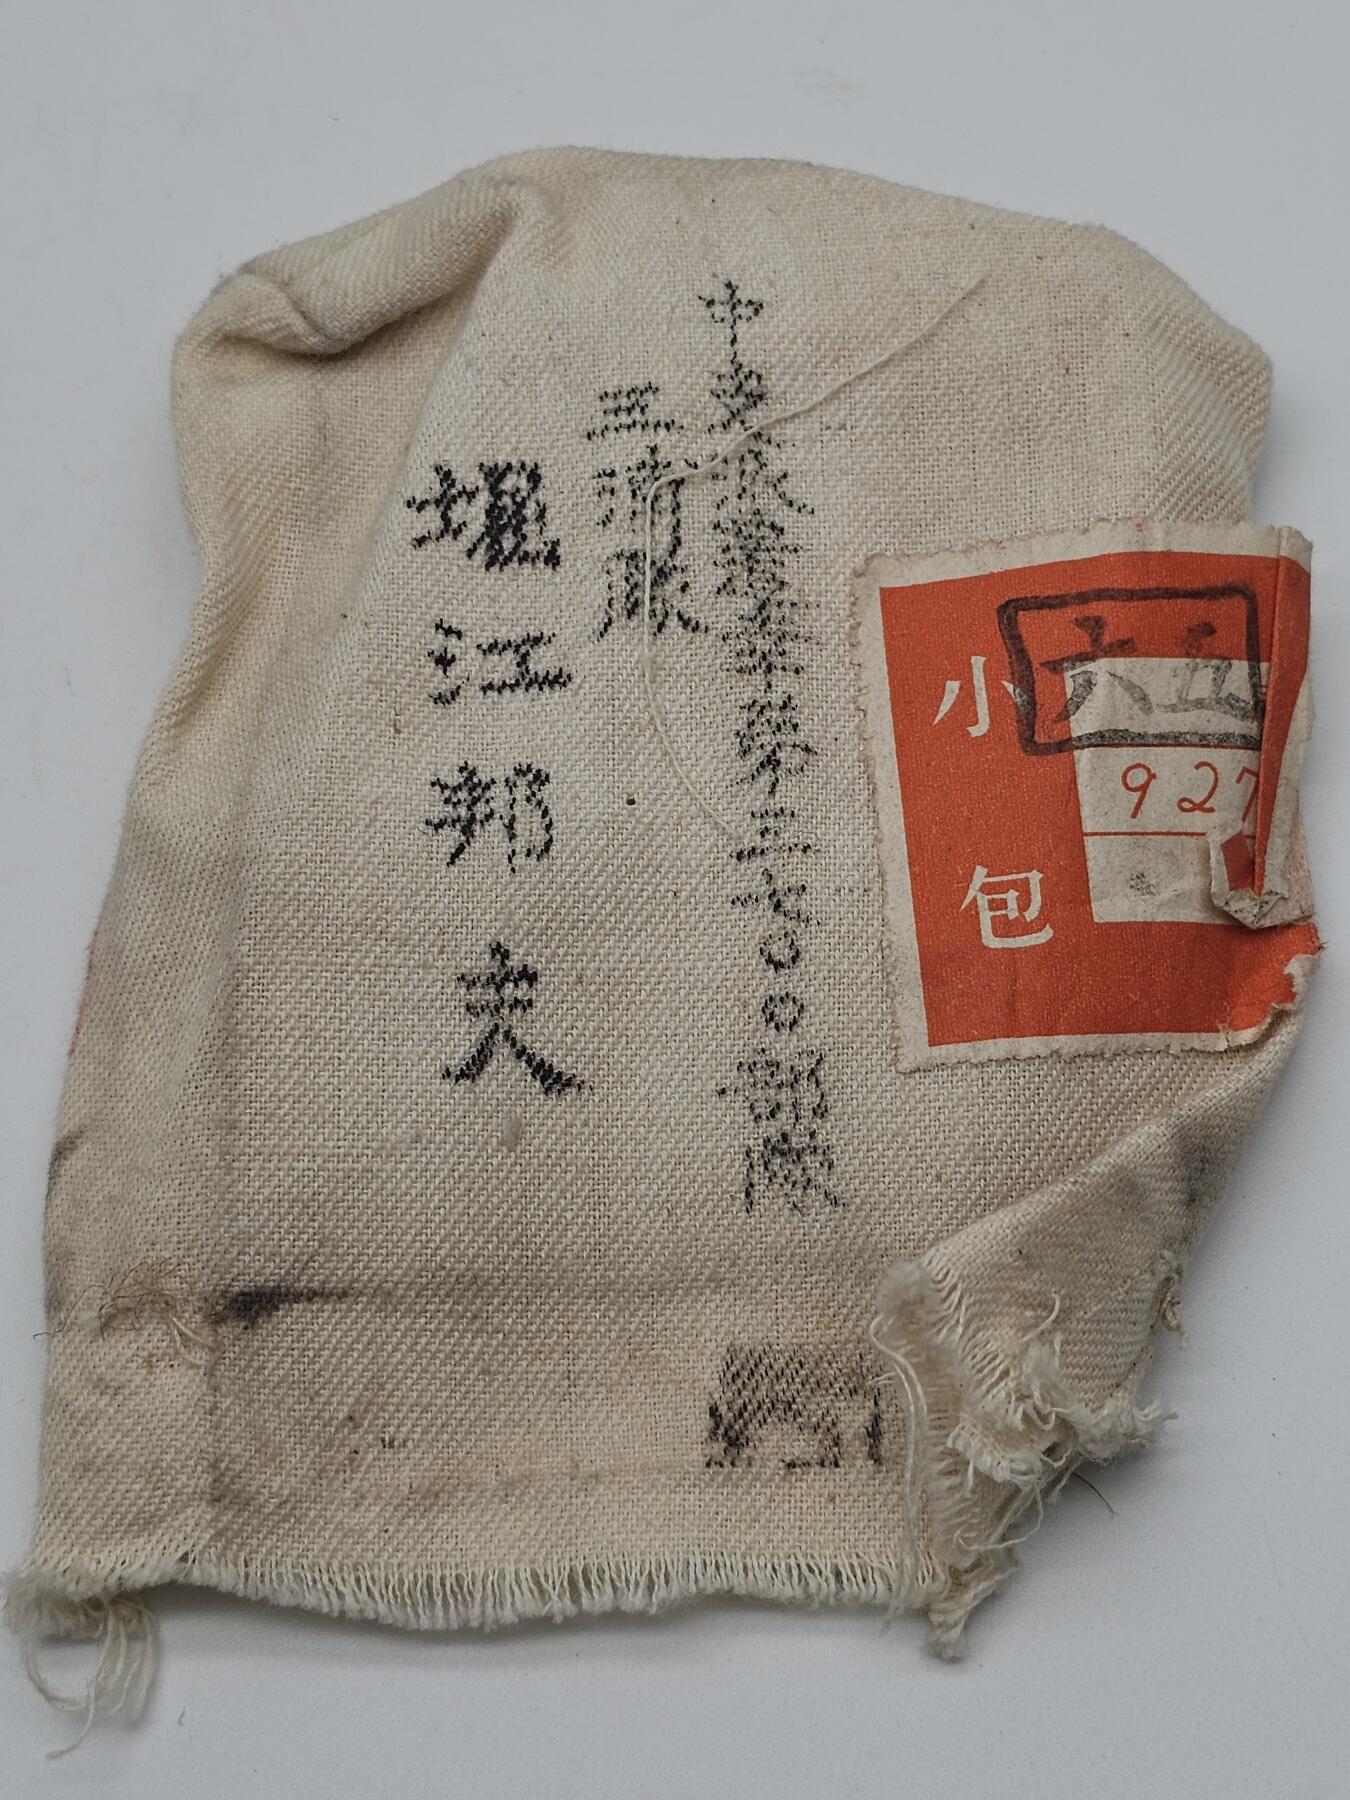 小包
六五
927
中支派遣軍第三七〇〇部隊
三浦隊
堀江邦夫